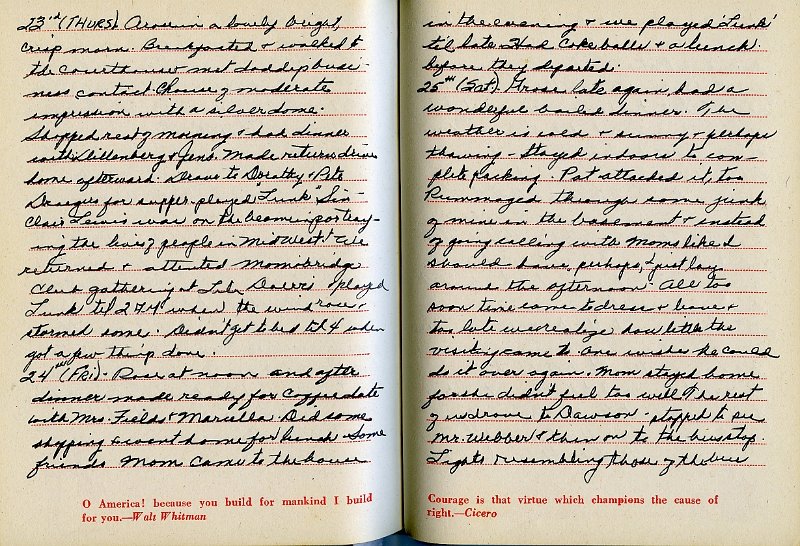 23rd (THURS) Arose in a lovely bright,
crisp morn. Breakfasted & walked to
the courthouse, met daddys busi-
ness contact
impression with a silver dome.
Shopped rest of morning & had dinner
with & Jens. Made return drive
home afterward. Drove to Dorothy & Pete
for supper. played "Tunk" Sin-
clair Lewis was on the beam in portray-
ing the lives of people in MidWest! We
returned & attended Moms bridge
Club gathering at & played
Tunk til 2 when the wind rose &
stormed some. Didn't get to bed til 4 when
got a few things done.
24th (Fri) - Rose at noon and after
dinner made ready for coffee date
with Mrs. Fields & Marcella. Did some
shopping & went home for lunch. Some
friends Mom came to the house
O America! because you build for mankind I build
for you.—Walt Whitman
in the evening & we played 'Tunk'
til late. Had Coke balls & a lunch
before they departed.
25th (Sat) Arose late again, had a
wonderful boiled dinner. The
weather is cold & sunny & perhaps
thawing. Stayed indoors to com-
plete packing. Pat attacked it, too
Rummaged through some junk
of mine in the basement & instead
of going calling with Moms like I
should have, perhaps, I just lay
around the afternoon. All too
soon time came to dress & leave &
too late we realize how little the
visiting came to. One wishes he could
do it over again. Mom stayed home
for she didn't feel too well. The rest
of us drove to Dawson - stopped to see
Mr. Webber & then on to the bus stop.
Lights resembling those of the bus
Courage is that virtue which champions the cause of
right.—Cicero